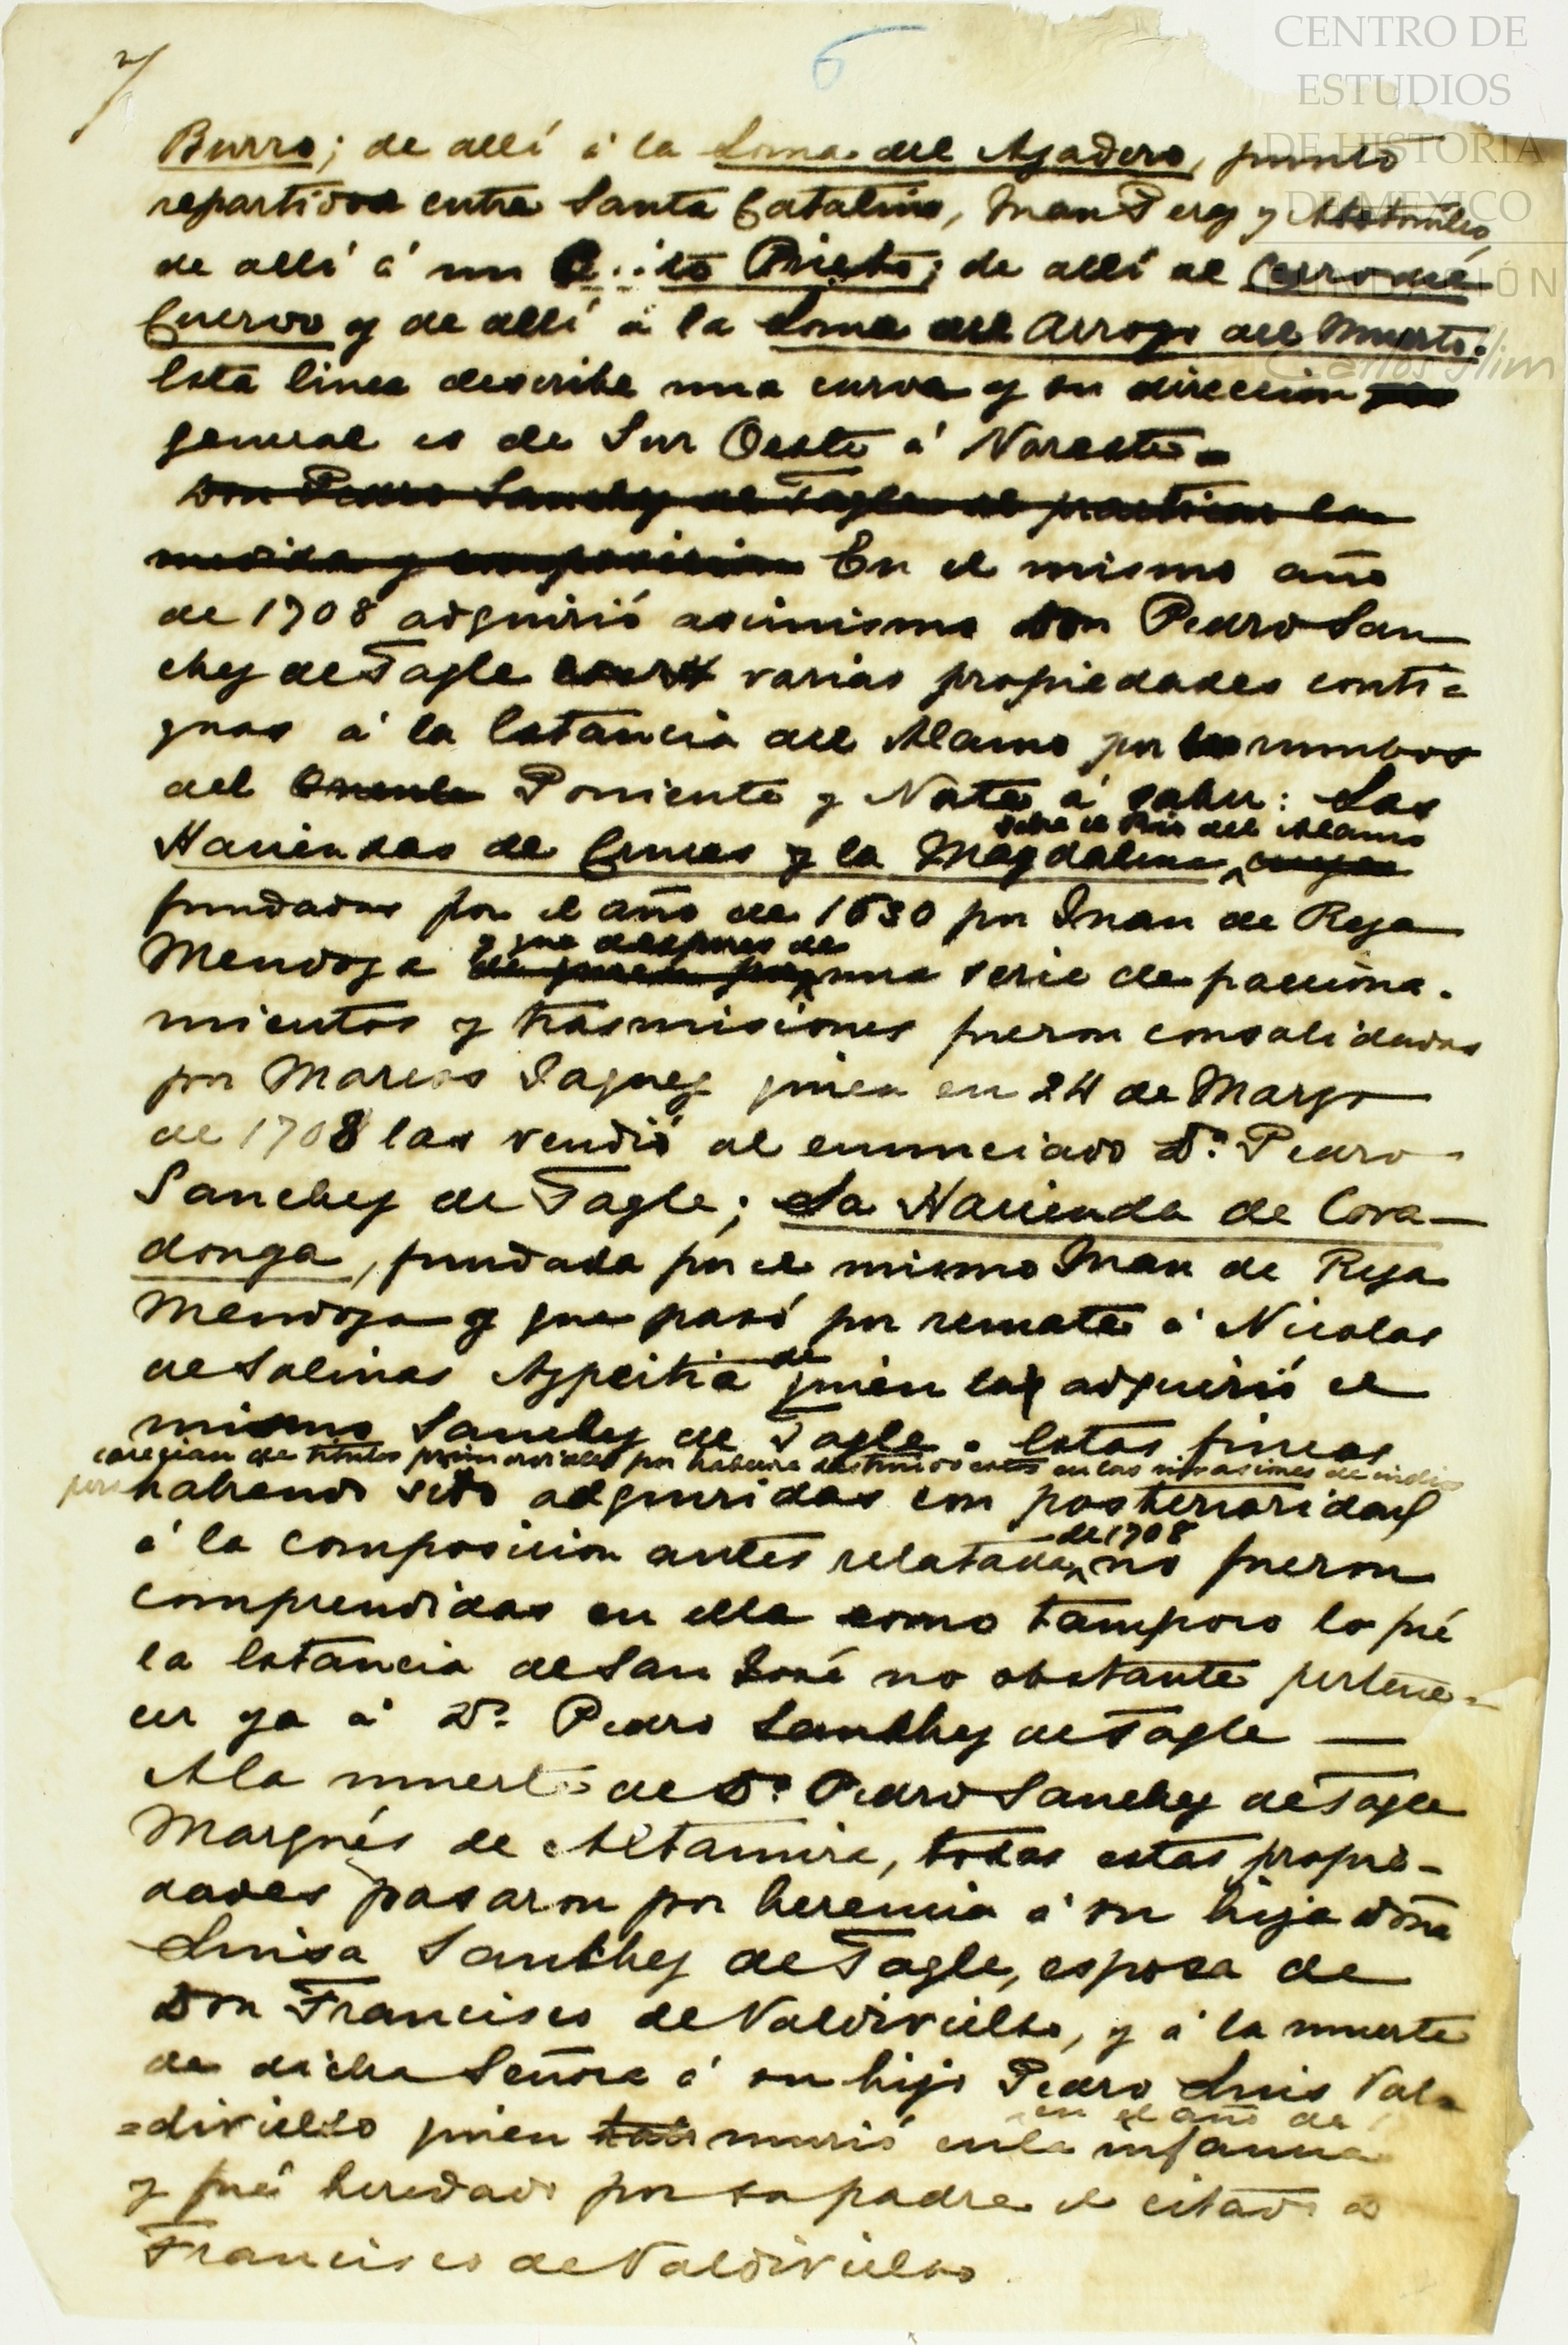 7
6
CENTRO DE
ESTUDIOS
DE HISTORIA
DE MEXICO
FUNDACIÓN
Carlos Slim
Burro; de allí á la Loma del Ajadero, punto
repartidos entre Santa Catalina, Juan Perez y
de allí á un Prieto; de allí al Cerro del
Cuervo y de allí á la Loma del Arroyo del Muerto.
Esta linea describe una curva y su direccion
general es de Sur Oeste á Noreste.
Don Pedro Sanchez de Tagle al practicar la
medida y composicion En el mismo año
de 1708 adquirió asimismo Don Pedro San
chez de Tagle varias propiedades conti=
guas á la Estancia del Alamo por los rumbos
del Oriente Poniente y Norte á saber: Las
sobre el Rio del Alamo
Haciendas de Cruces y la Magdalena, cuyas
fundadas por el año de 1630 por Juan de Reza
y que despues de
Mendoza una serie de facciona.
mientos y trasmisiones fueron consolidadas
por Marcos Iaguez quien en 24 de Marzo
de 1708 las vendió al enunciado Dn. Pedro
Sanchez de Tagle; La Hacienda de Cova-
donga, fundada por el mismo Juan de Reza
Mendoza y que pasó por remate á Nicolas
de
de Salinas Azpeitia quien la adquirió el
mismo Sanchez de Tagle. Estas fincas
carecian de titulos primordiales por haberse destruido estos en las invasiones de indios
pero habiendo sido adquiridas con posterioridad
de 1708
á la composicion antes relatada no fueron
comprendidas en ella como tampoco lo fué
la Estancia de San José no obstante pertene=
cer ya á Dn. Pedro Sanchez de Tagle
A la muerte de Dn. Pedro Sanchez de Tagle
Marqués de Altamira, todas estas propie-
dades pasaron por herencia á su hija Doña
Luisa Sanchez de Tagle, esposa de
Don Francisco de Valdivielso, y á la muerte
de dicha Señora á su hijo Pedro Luis Val=
en el año de
=divielso quien murió en la infancia
y fué heredado por su padre el citado D
Francisco de Valdivielso.